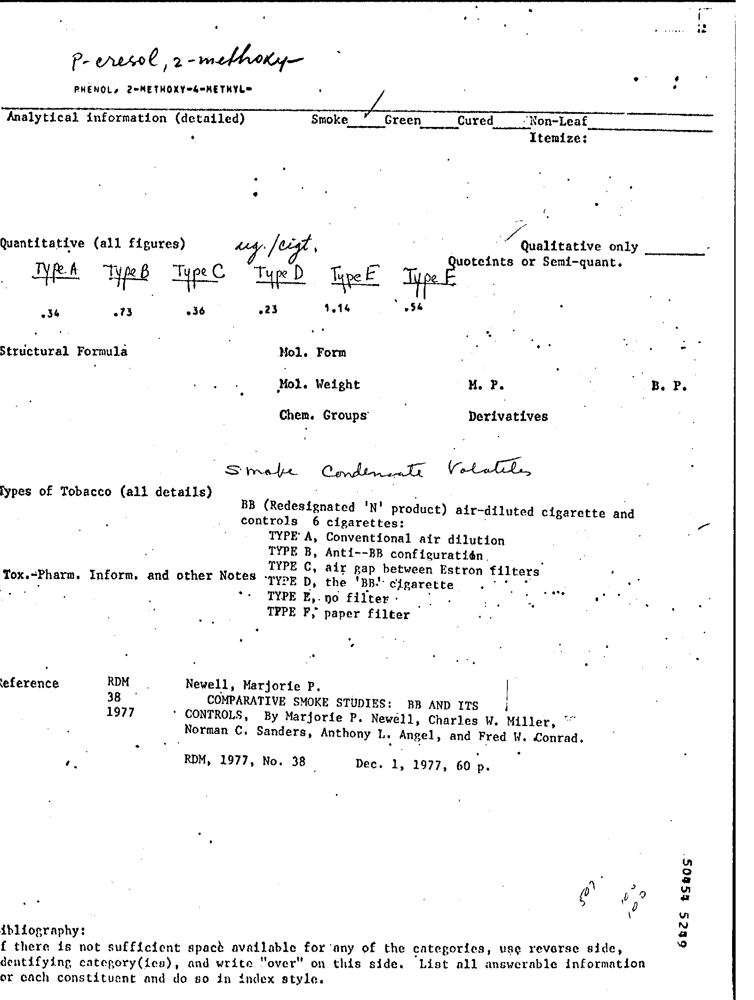 P-cresol, 2-methoxy-
PHENOL, 2-METHOXY-4-METHYL-
Analytical information (detailed) Smoke Green Cured Non-Leaf
Itemize:
Quantitative (all figures) ug./cigt. Qualitative only
Quoteints or Semi-quant.
Type A Type B Type C Type D Type E Type F
.34 .73 .36 .23 1.14 .54
Structural Formula Mol. Form
Mol. Weight M. P. B. P.
Chem. Groups Derivatives
Smoke Condensate Volatiles
Types of Tobacco (all details)
BB (Redesignated 'N' product) air-diluted cigarette and
controls 6 cigarettes:
TYPE A, Conventional air dilution
TYPE B, Anti--BB configuration
TYPE C, air gap between Estron filters
Tox.-Pharm. Inform. and other Notes TYPE D, the 'BB' cigarette
TYPE E, no filter
TYPE F, paper filter
Reference RDM Newell, Marjorie P.
38 COMPARATIVE SMOKE STUDIES: BB AND ITS
1977 CONTROLS, By Marjorie P. Newell, Charles W. Miller,
Norman C. Sanders, Anthony L. Angel, and Fred W. Conrad.
RDM, 1977, No. 38 Dec. 1, 1977, 60 p.
50454 5249
ibliography:
f there is not sufficient space available for any of the categories, use reverse side,
dentifying category(ies), and write "over" on this side. List all answerable information
or each constituent and do so in index style.